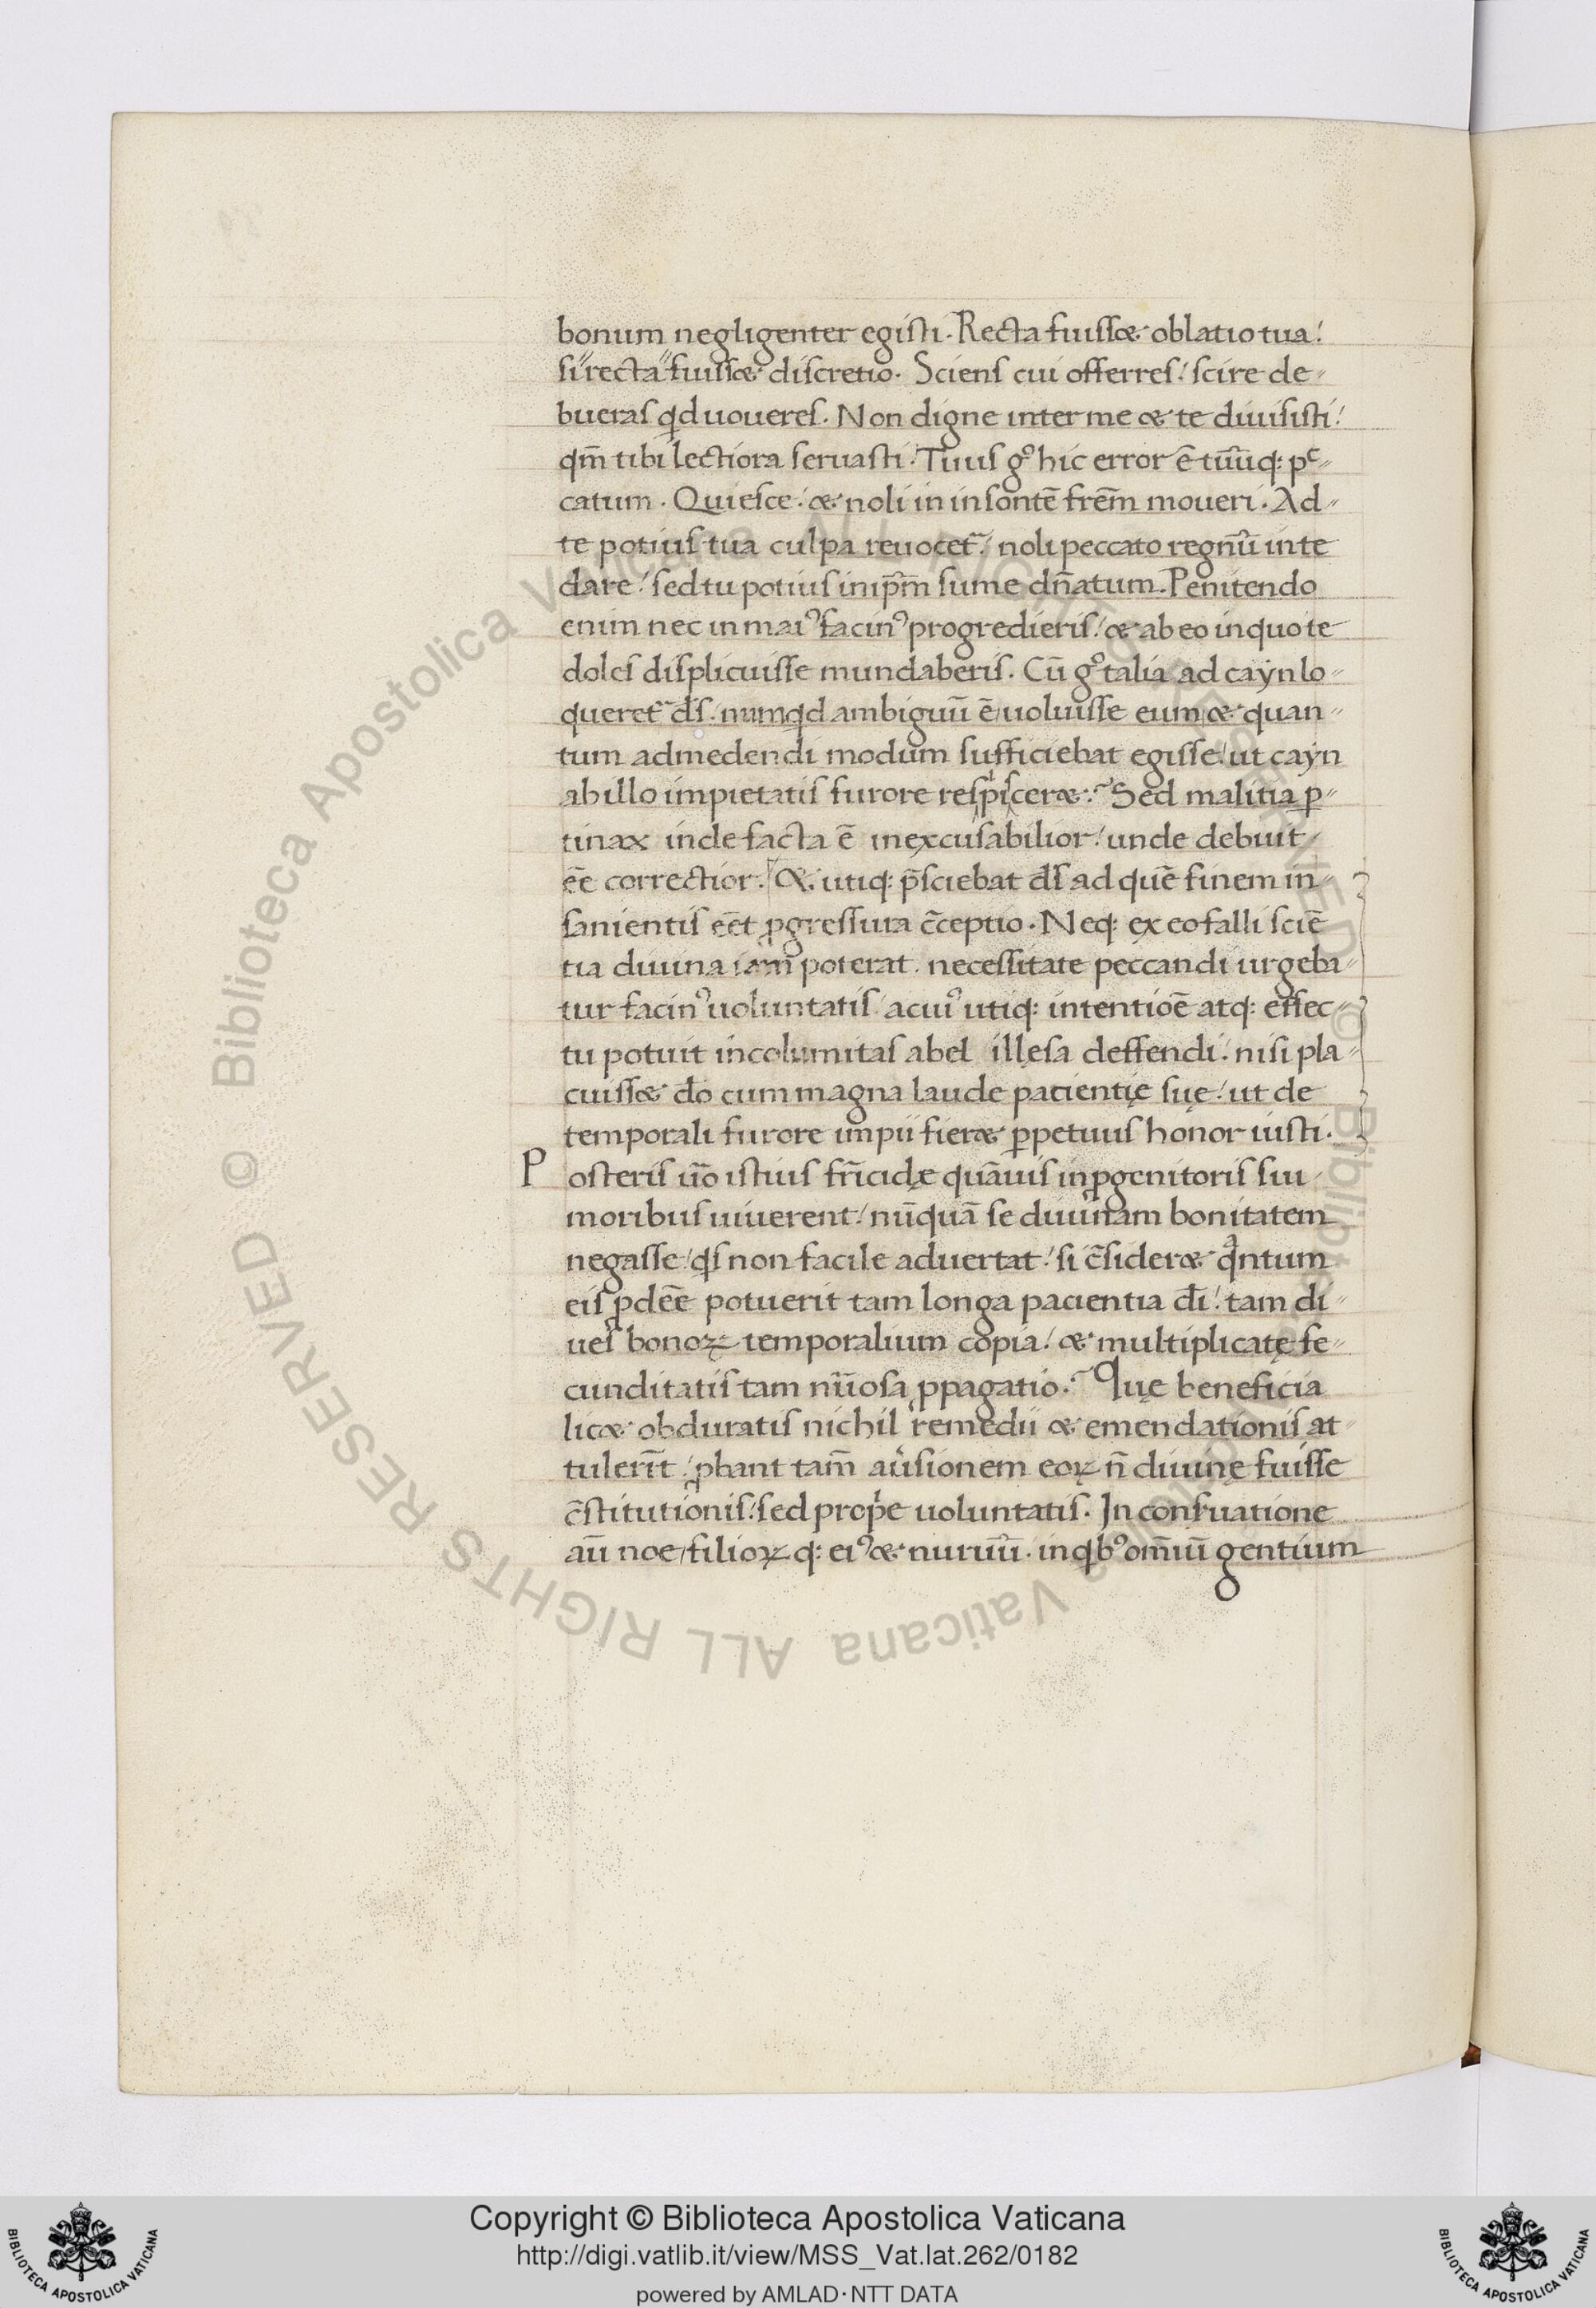 bonum negligenter egisti. Recta fuisset oblatio tua!
si recta fuisset discretio. Sciens cui offerres! scire de-
bueras qd uoueres. Non digne inter me & te diuisisti!
qm̄ tibi lectiora seruasti. Tuus gͦ hic error ē tuūq: pc-
catum. Quiesce! & noli in insontē frēm moueri. Ad-
te potius tua culpa reuocet᷑! noli peccato regnū inte
dare! sed tu potius inip̄m̄ sume dn̄atum. Penitendo
enim nec in maiꝰ facinꝰ progredieris! & ab eo inquo te
doles displicuisse mundaberis. Cū gͦ talia ad cayn lo-
queret᷑ ds̄. numqd ambiguū ē uoluisse eum & quan-
tum admedendi modum sufficiebat egisse! ut cayn
ab illo impietatis furore respisceret? Sed malitia ꝑ-
tinax inde facta ē inexcusabilior! unde debuit
eē correctior. & utiq: p̄sciebat ds̄ ad quē finem in-
sanientis eēt ꝓgressura c̄ceptio. Neq: ex eo falli sciē
tia diuina iam poterat. necessitate peccandi urgeba-
tur facinꝰ uoluntatis acuiꝰ utiq: intentioē atq: effec-
tu potuit incolumitas abel illęsa deffendi. nisi pla-
cuisset do cum magna laude pacientię suę! ut de
temporali furore impii fieret ꝑpetuus honor iusti.
Posteris uo istius fr̄icidę quāuis inꝓgenitoris sui
moribus uiuerent! nūquā se diuinam bonitatem
negasse! qs non facile aduertat! si c̄sideret qntum
eis ꝓdeē potuerit tam longa pacientia di! tam di-
ues bonoꝝ temporalium copia! & multiplicatę fe-
cunditatis tam nūosa ꝓpagatio? Quę beneficia
licet obduratis nichil remedii & emendationis at-
tulerīt. ꝓbant tam̄ auͥsionem eoꝝ n̄ diuinę fuisse
c̄stitutionis! sed propͥe uoluntatis. In conseruatione
aū noe filioꝝ q: eiꝰ & nuruū. inqbꝰ om̄iū gentium
Copyright © Biblioteca Apostolica Vaticana
http://digi.vatlib.it/view/MSS_Vat.lat.262/0182
powered by AMLAD·NTT DATA
BIBLIOTECA APOSTOLICA VATICANA
BIBLIOTECA APOSTOLICA VATICANA
© Biblioteca Apostolica Vaticana ALL RIGHTS RESERVED
© Biblioteca Apostolica Vaticana ALL RIGHTS RESERVED